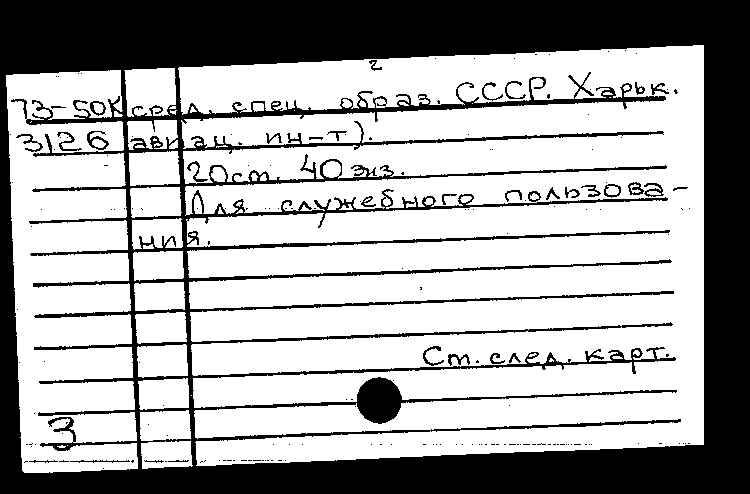 2
73-50К сред. спец. образ. СССР. Харьк.
3126 авиац. ин-т).
20ст. 40 экз.
Для служебного пользова-
ния.
Ст. след. карт.
3